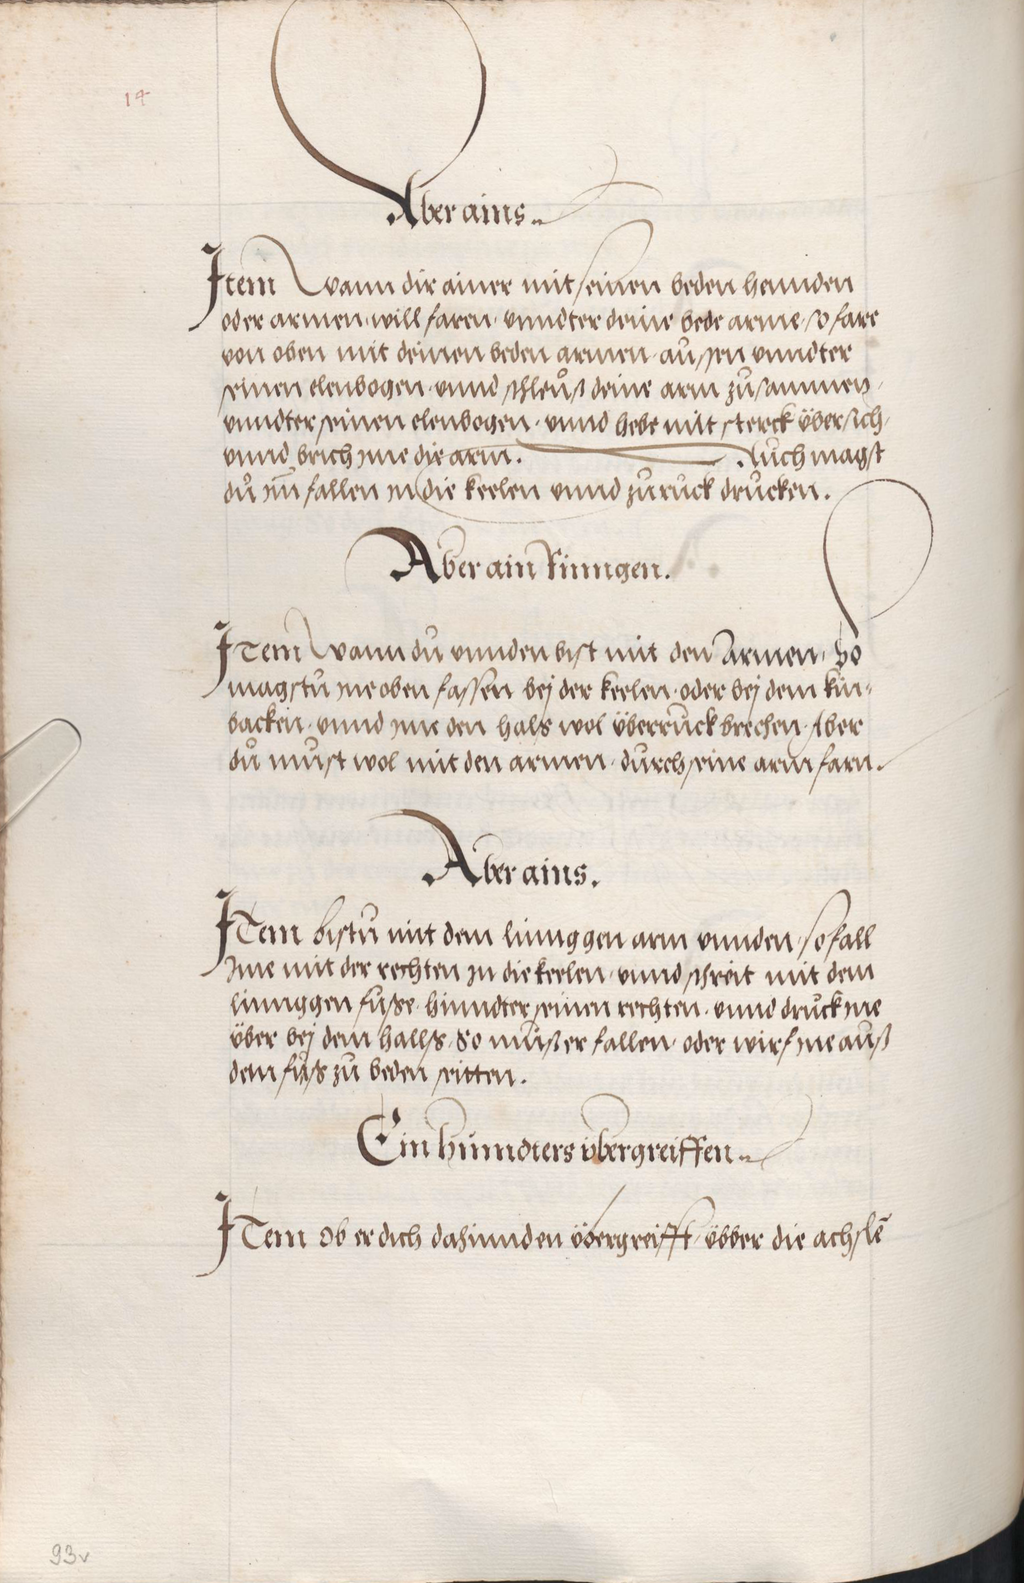 14
Aber ains.
Item Wann dir ainer mit seinen beden hennden
oder armen will faren vnndter deine bede arme, so fare
von oben mit deinen beden armen aussen vnndter
seinen elenbogen vnnd schleuß deine arm zusammen,
vnndter seinen elenbogen, vnnd hebe mit sterck übersich,
vnnd brich ime die arm. Auch magst
du im fallen in die keelen vnnd zuruck drucken.
Aber ain Ringen.
Item Wann du vnnden bist mit den Armen, So
magstu ine oben fassen bej der keelen, oder bej dem kin,
backen, vnnd ime den hals wol überruck brechen, Aber
du must wol mit den armen, durch seine arm farn.
Aber ains.
Item bistu mit dem linnggen arm vnnden, so fall
Ime mit der rechten in die keelen, vnnd schreit mit dem
linnggen fusse, hinndter seinen rechten, vnnd druck ine
über bej dem hallss, So muß er fallen, oder wirf ine auß
dem fuß zu beden seitten.
Ein hinndters übergreiffen
Item ob er dich dahinnden übergreifft, übber die achslē
93v